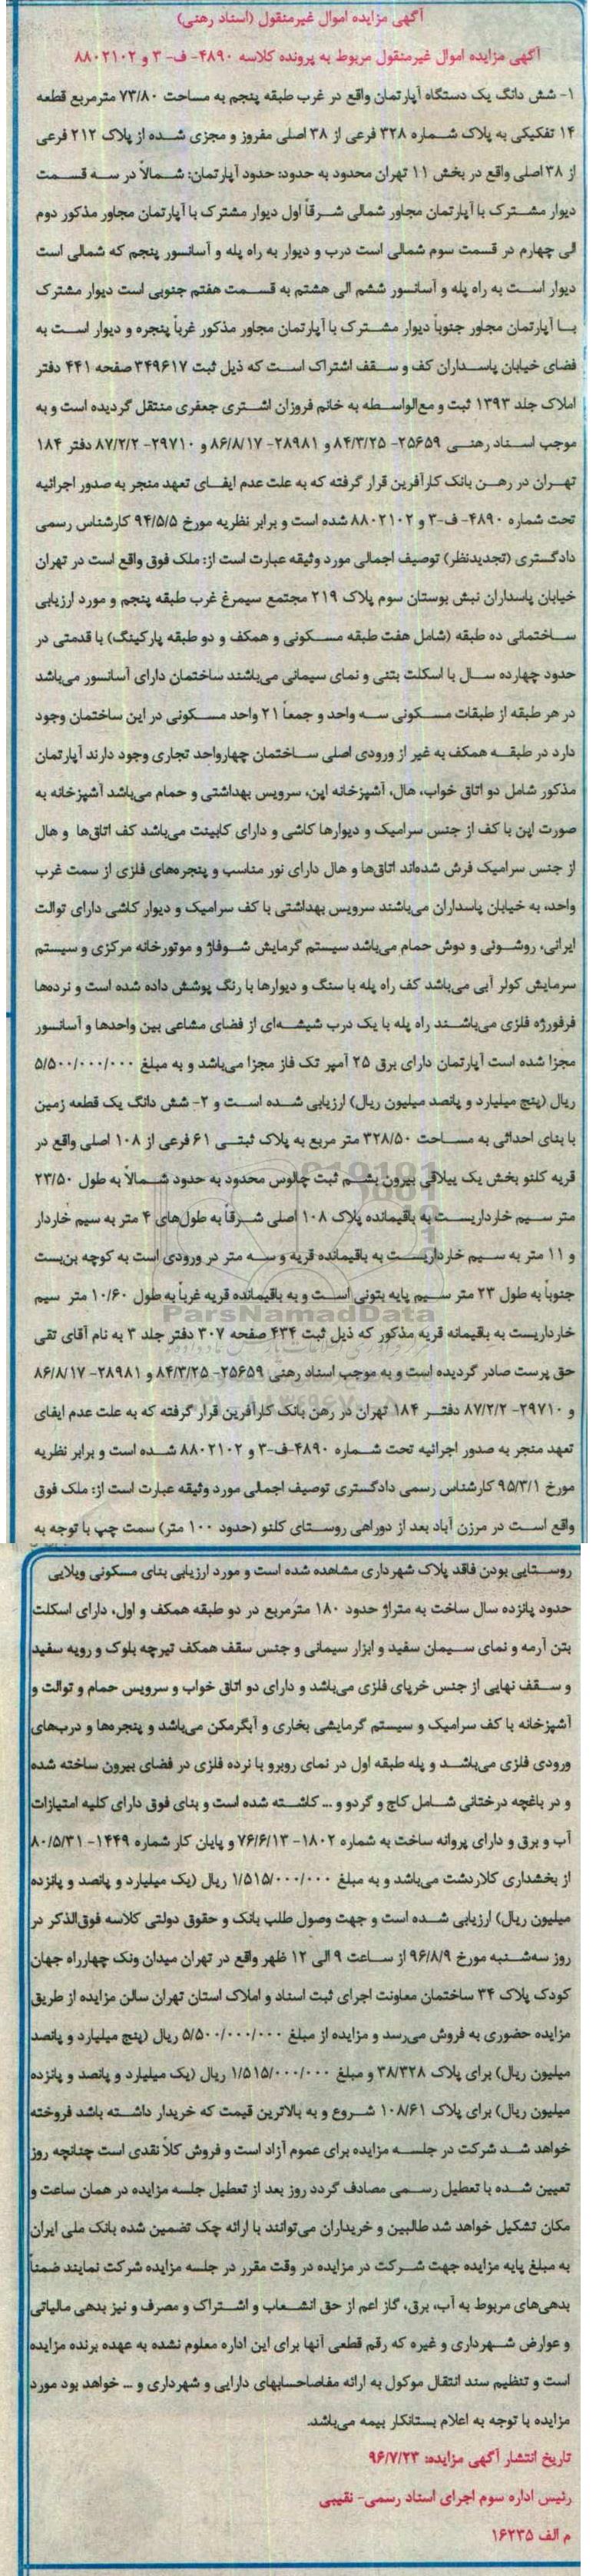 آگهی مزایده اموال غیرمنقول (اسناد رهنی)
آگهی مزایده اموال غیرمنقول مربوط به پرونده کلاسه ۴۸۹۰- ف- ۳ و ۸۸۰۲۱۰۲
۱- شش دانگ یک دستگاه آپارتمان واقع در غرب طبقه پنجم به مساحت ۷۳/۸۰ مترمربع قطعه
۱۴ تفکیکی به پلاک شماره ۳۲۸ فرعی از ۳۸ اصلی مفروز و مجزی شده از پلاک ۲۱۲ فرعی
از ۳۸ اصلی واقع در بخش ۱۱ تهران محدود به حدود: حدود آپارتمان: شمالاً در سه قسمت
دیوار مشترک با آپارتمان مجاور شمالی شرقاً اول دیوار مشترک با آپارتمان مجاور مذکور دوم
الی چهارم در قسمت سوم شمالی است درب و دیوار به راه پله و آسانسور پنجم که شمالی است
دیوار است به راه پله و آسانسور ششم الی هشتم به قسمت هفتم جنوبی است دیوار مشترک
با آپارتمان مجاور جنوباً دیوار مشترک با آپارتمان مجاور مذکور غرباً پنجره و دیوار است به
فضای خیابان پاسداران کف و سقف اشتراک است که ذیل ثبت ۳۴۹۶۱۷ صفحه ۴۴۱ دفتر
املاک جلد ۱۳۹۳ ثبت و مع‌الواسطه به خانم فروزان اشتری جعفری منتقل گردیده است و به
موجب اسناد رهنی ۲۵۶۵۹- ۸۴/۳/۲۵ و ۲۸۹۸۱- ۸۶/۸/۱۷ و ۲۹۷۱۰- ۸۷/۲/۲ دفتر ۱۸۴
تهران در رهن بانک کارآفرین قرار گرفته که به علت عدم ایفای تعهد منجر به صدور اجرائیه
تحت شماره ۴۸۹۰- ف-۳ و ۸۸۰۲۱۰۲ شده است و برابر نظریه مورخ ۹۴/۵/۵ کارشناس رسمی
دادگستری (تجدیدنظر) توصیف اجمالی مورد وثیقه عبارت است از: ملک فوق واقع است در تهران
خیابان پاسداران نبش بوستان سوم پلاک ۲۱۹ مجتمع سیمرغ غرب طبقه پنجم و مورد ارزیابی
ساختمانی ده طبقه (شامل هفت طبقه مسکونی و همکف و دو طبقه پارکینگ) با قدمتی در
حدود چهارده سال با اسکلت بتنی و نمای سیمانی می‌باشند ساختمان دارای آسانسور می‌باشد
در هر طبقه از طبقات مسکونی سه واحد و جمعاً ۲۱ واحد مسکونی در این ساختمان وجود
دارد در طبقه همکف به غیر از ورودی اصلی ساختمان چهارواحد تجاری وجود دارند آپارتمان
مذکور شامل دو اتاق خواب، هال، آشپزخانه اپن، سرویس بهداشتی و حمام می‌باشد آشپزخانه به
صورت اپن با کف از جنس سرامیک و دیوارها کاشی و دارای کابینت می‌باشد کف اتاق‌ها و هال
از جنس سرامیک فرش شده‌اند اتاق‌ها و هال دارای نور مناسب و پنجره‌های فلزی از سمت غرب
واحد، به خیابان پاسداران می‌باشند سرویس بهداشتی با کف سرامیک و دیوار کاشی دارای توالت
ایرانی، روشوئی و دوش حمام می‌باشد سیستم گرمایش شوفاژ و موتورخانه مرکزی و سیستم
سرمایش کولر آبی می‌باشد کف راه پله با سنگ و دیوارها با رنگ پوشش داده شده است و نرده‌ها
فرفورژه فلزی می‌باشند راه پله با یک درب شیشه‌ای از فضای مشاعی بین واحدها و آسانسور
مجزا شده است آپارتمان دارای برق ۲۵ آمپر تک فاز مجزا می‌باشد و به مبلغ ۵/۵۰۰/۰۰۰/۰۰۰
ریال (پنج میلیارد و پانصد میلیون ریال) ارزیابی شده است و ۲- شش دانگ یک قطعه زمین
با بنای احداثی به مساحت ۳۲۸/۵۰ متر مربع به پلاک ثبتی ۶۱ فرعی از ۱۰۸ اصلی واقع در
قریه کلنو بخش یک ییلاقی بیرون بشم ثبت چالوس محدود به حدود شمالاً به طول ۲۳/۵۰
متر سیم خارداریست به باقیمانده پلاک ۱۰۸ اصلی شرقاً به طول‌های ۴ متر به سیم خاردار
و ۱۱ متر به سیم خارداریست به باقیمانده قریه و سه متر در ورودی است به کوچه بن‌بست
جنوباً به طول ۲۳ متر سیم پایه بتونی است و به باقیمانده قریه غرباً به طول ۱۰/۶۰ متر سیم
خارداریست به باقیمانه قریه مذکور که ذیل ثبت ۴۳۴ صفحه ۳۰۷ دفتر جلد ۳ به نام آقای تقی
حق پرست صادر گردیده است و به موجب اسناد رهنی ۲۵۶۵۹- ۸۴/۳/۲۵ و ۲۸۹۸۱- ۸۶/۸/۱۷
و ۲۹۷۱۰- ۸۷/۲/۲ دفتر ۱۸۴ تهران در رهن بانک کارآفرین قرار گرفته که به علت عدم ایفای
تعهد منجر به صدور اجرائیه تحت شماره ۴۸۹۰-ف-۳ و ۸۸۰۲۱۰۲ شده است و برابر نظریه
مورخ ۹۵/۳/۱ کارشناس رسمی دادگستری توصیف اجمالی مورد وثیقه عبارت است از: ملک فوق
واقع است در مرزن آباد بعد از دوراهی روستای کلنو (حدود ۱۰۰ متر) سمت چپ با توجه به
روستایی بودن فاقد پلاک شهرداری مشاهده شده است و مورد ارزیابی بنای مسکونی ویلایی
حدود پانزده سال ساخت به متراژ حدود ۱۸۰ مترمربع در دو طبقه همکف و اول، دارای اسکلت
بتن آرمه و نمای سیمان سفید و ابزار سیمانی و جنس سقف همکف تیرچه بلوک و رویه سفید
و سقف نهایی از جنس خرپای فلزی می‌باشد و دارای دو اتاق خواب و سرویس حمام و توالت و
آشپزخانه با کف سرامیک و سیستم گرمایشی بخاری و آبگرمکن می‌باشد و پنجره‌ها و درب‌های
ورودی فلزی می‌باشد و پله طبقه اول در نمای روبرو با نرده فلزی در فضای بیرون ساخته شده
و در باغچه درختانی شامل کاج و گردو و ... کاشته شده است و بنای فوق دارای کلیه امتیازات
آب و برق و دارای پروانه ساخت به شماره ۱۸۰۲- ۷۶/۶/۱۳ و پایان کار شماره ۱۴۴۹- ۸۰/۵/۳۱
از بخشداری کلاردشت می‌باشد و به مبلغ ۱/۵۱۵/۰۰۰/۰۰۰ ریال (یک میلیارد و پانصد و پانزده
میلیون ریال) ارزیابی شده است و جهت وصول طلب بانک و حقوق دولتی کلاسه فوق‌الذکر در
روز سه‌شنبه مورخ ۹۶/۸/۹ از ساعت ۹ الی ۱۲ ظهر واقع در تهران میدان ونک چهارراه جهان
کودک پلاک ۳۴ ساختمان معاونت اجرای ثبت اسناد و املاک استان تهران سالن مزایده از طریق
مزایده حضوری به فروش می‌رسد و مزایده از مبلغ ۵/۵۰۰/۰۰۰/۰۰۰ ریال (پنج میلیارد و پانصد
میلیون ریال) برای پلاک ۳۸/۳۲۸ و مبلغ ۱/۵۱۵/۰۰۰/۰۰۰ ریال (یک میلیارد و پانصد و پانزده
میلیون ریال) برای پلاک ۱۰۸/۶۱ شروع و به بالاترین قیمت که خریدار داشته باشد فروخته
خواهد شد شرکت در جلسه مزایده برای عموم آزاد است و فروش کلاً نقدی است چنانچه روز
تعیین شده با تعطیل رسمی مصادف گردد روز بعد از تعطیل جلسه مزایده در همان ساعت و
مکان تشکیل خواهد شد طالبین و خریداران می‌توانند با ارائه چک تضمین شده بانک ملی ایران
به مبلغ پایه مزایده جهت شرکت در مزایده در وقت مقرر در جلسه مزایده شرکت نمایند ضمناً
بدهی‌های مربوط به آب، برق، گاز اعم از حق انشعاب و اشتراک و مصرف و نیز بدهی مالیاتی
و عوارض شهرداری و غیره که رقم قطعی آنها برای این اداره معلوم نشده به عهده برنده مزایده
است و تنظیم سند انتقال موکول به ارائه مفاصاحسابهای دارایی و شهرداری و ... خواهد بود مورد
مزایده با توجه به اعلام بستانکار بیمه می‌باشد.
تاریخ انتشار آگهی مزایده: ۹۶/۷/۲۳
رئیس اداره سوم اجرای اسناد رسمی- نقیبی
م الف ۱۶۲۳۵
ParsNamadData